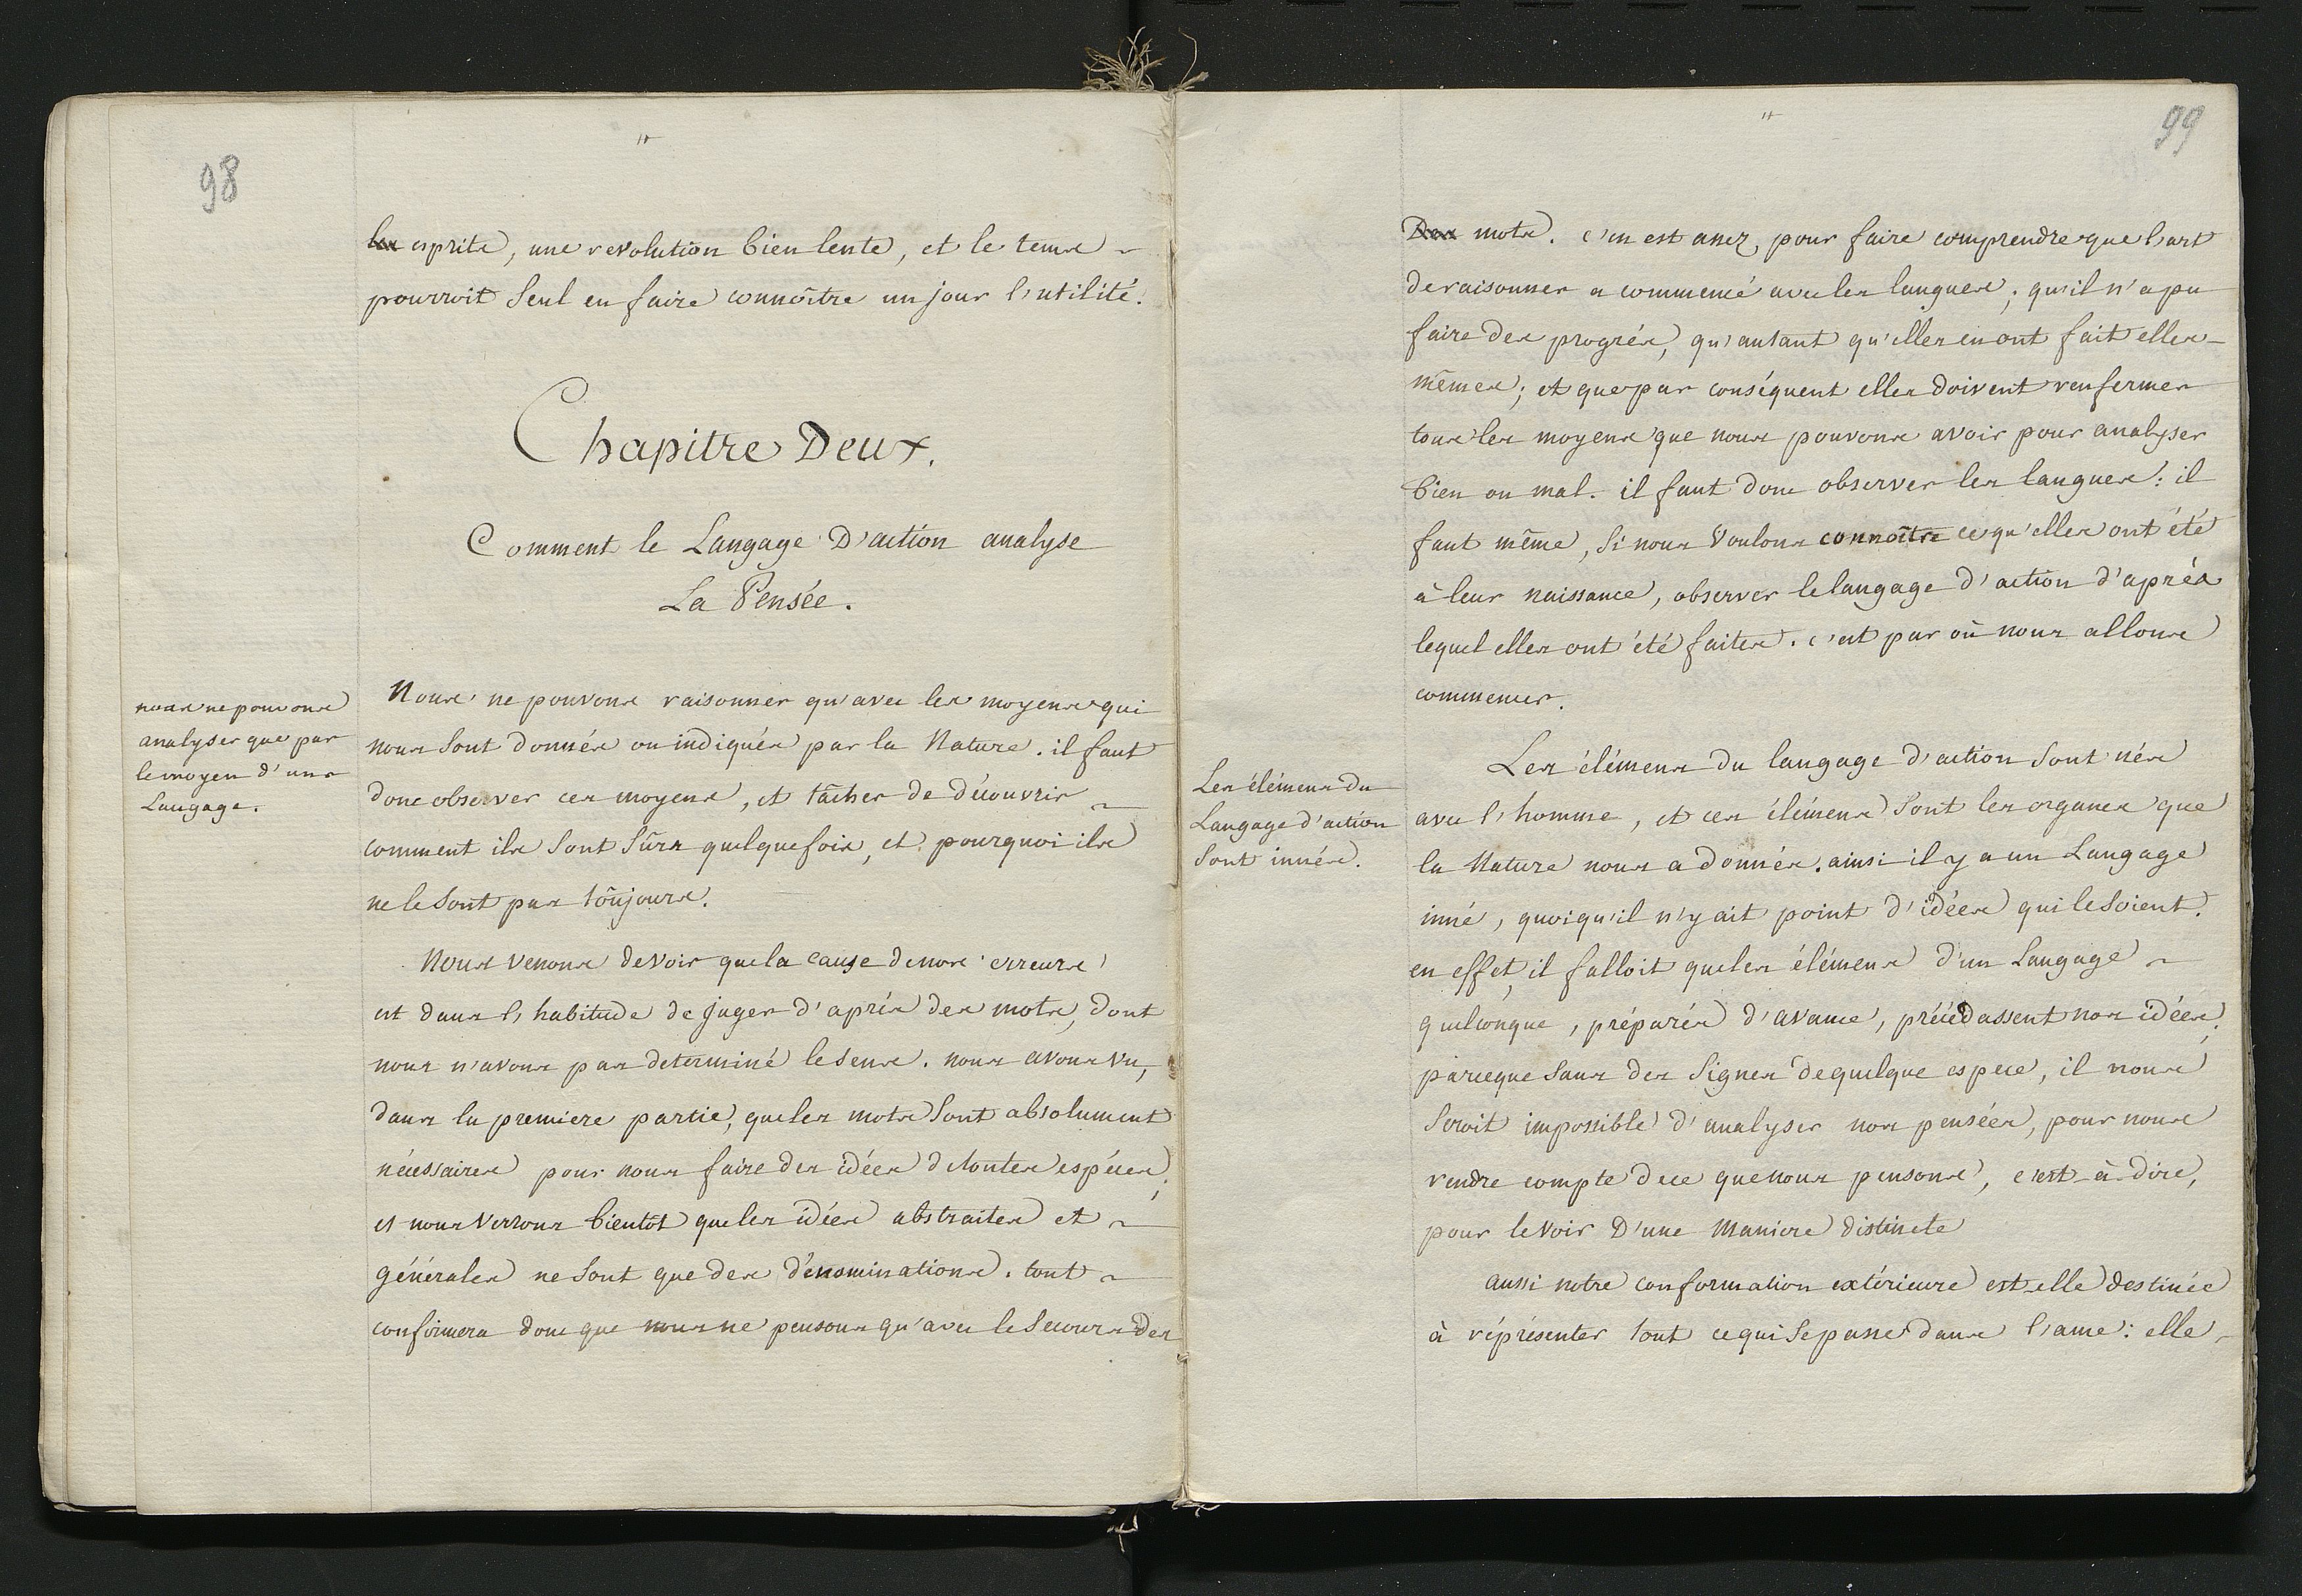 98
les esprits, une revolution bien lente, et le tems
pourroit seul en faire connoître un jour l'utilité.
Chapitre Deux.
Comment le Langage D'action analyse
La Pensée.
nous ne pouvons
analyser que par
le moyen d'un
Langage.
Nous ne pouvons raisonner qu'avec les moyens qui
nous sont donnés ou indiqués par la Nature. il faut
donc observer ces moyens, et tâcher de découvrir
comment ils sont sûrs quelquefois, et pourquoi ils
ne le sont pas toûjours.
Nous venons de voir que la cause de nos erreurs
est dans l'habitude de juger d'après des mots, dont
nous n'avons pas determiné le sens. nous avons vu,
dans la premiere partie, que les mots sont absolument
nécessaires pour nous faire des idées de toutes espéces;
et nous verrons bientôt que les idées abstraites et
générales ne sont que des dénominations. tout
confirmera donc que nous ne pensons qu'avec le secours des
99
Des mots. c'en est assez, pour faire comprendre que l'art
de raisonner a commencé avec les langues; qu'il n'a pu
faire des progrès, qu'autant qu'elles en ont fait elles-
mêmes; et que par conséquent elles doivent renfermer
tous les moyens que nous pouvons avoir pour analyser
bien ou mal. il faut donc observer les langues: il
faut même, si nous voulons connoître ce qu'elles ont été
à leur naissance, observer le langage d'action d'après
lequel elles ont été faites. c'est par où nous allons
commencer.
Les élémens du
Langage d'action
sont innés.
Les élémens du langage d'action sont nés
avec l'homme, et ces élémens sont les organes que
la Nature nous a donnés. ainsi il y a un Langage
inné, quoiqu'il n'y ait point d'idées qui le soient.
en effet, il falloit que les élémens d'un Langage
quelconque, préparés d'avance, précédassent nos idées;
parceque sans des signes de quelque espece, il nous
seroit impossible d'analyser nos pensées, pour nous
rendre compte de ce que nous pensons, c'est-à-dire,
pour le voir D'une Maniere distincte
aussi notre conformation extérieure est-elle destinée
à réprésenter tout ce qui se passe dans l'ame: elle